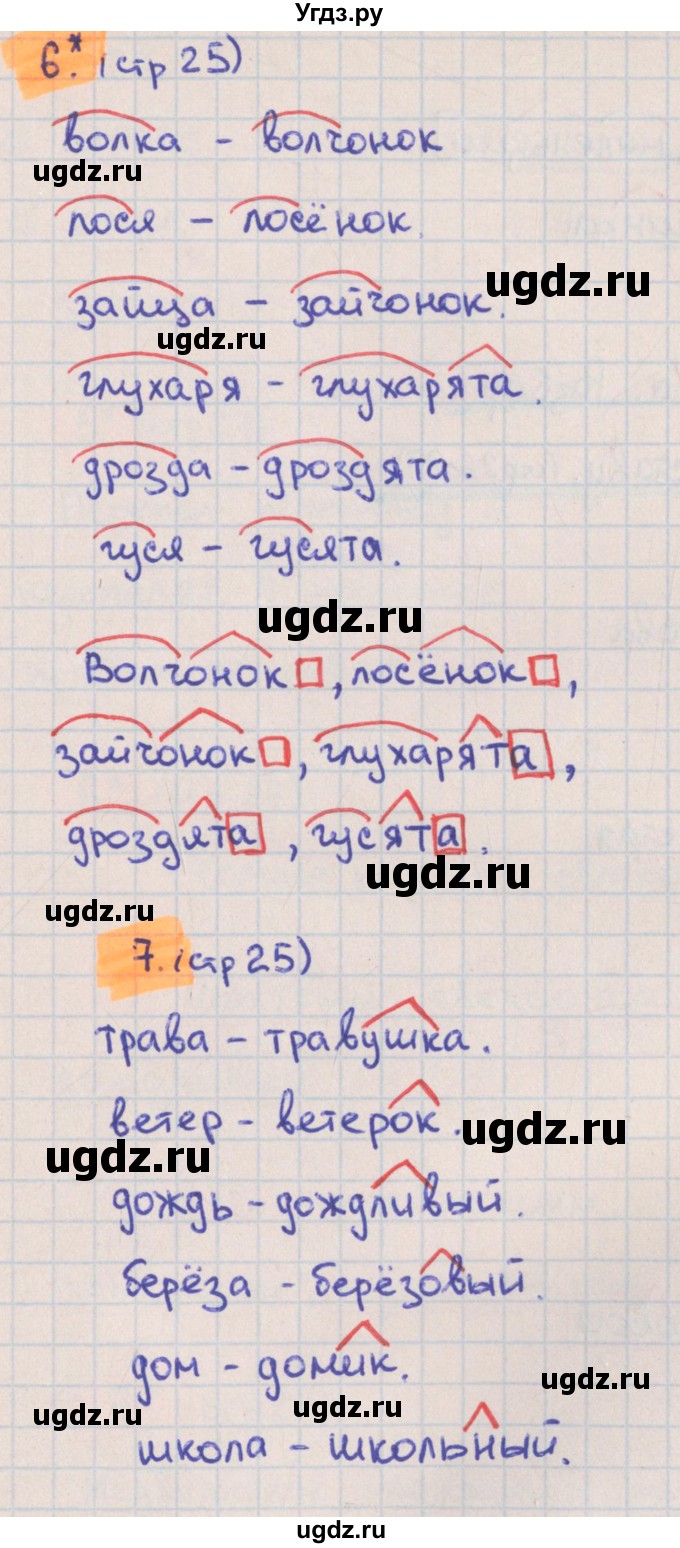 Угдз.ру
6*. (стр 25)
волка - волчонок
ugdz.ru
лося - лосёнок.
ugdz.ru
зайца - зайчонок.
ugdz.ru
глухаря - глухарята.
дрозда - дроздята.
гуся - гусята.
ugdz.ru
Волчонок, лосёнок,
зайчонок, глухарята,
дроздята, гусята.
ugdz.ru
ugdz.ru
7. (стр 25)
трава - травушка.
ветер - ветерок.
ugdz.ru
ugdz.ru
дождь - дождливый.
берёза - берёзовый.
дом - домик.
ugdz.ru
ugdz.ru
ugdz.ru
школа - школьный.
ugdz.ru